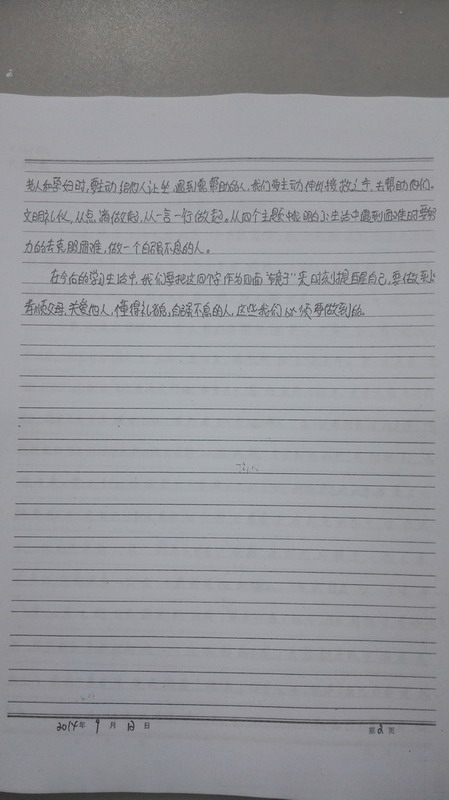 老人和孕妇时，要主动给他人让坐，遇到需帮助的人，我们要主动伸出援救之手，去帮助他们。
文明礼仪，从点滴做起，从一言一行做起。从四个主题中能明白：生活中遇到困难时要努
力的去克服困难，做一个自强不息的人。
在今后的学习生活中，我们要把这四个字作为四面“镜子”来时刻提醒自己，要做到
孝顺父母，关爱他人，懂得礼貌，自强不息的人，这些我们必须要做到的。
2014年 9 月 12 日
第 2 页